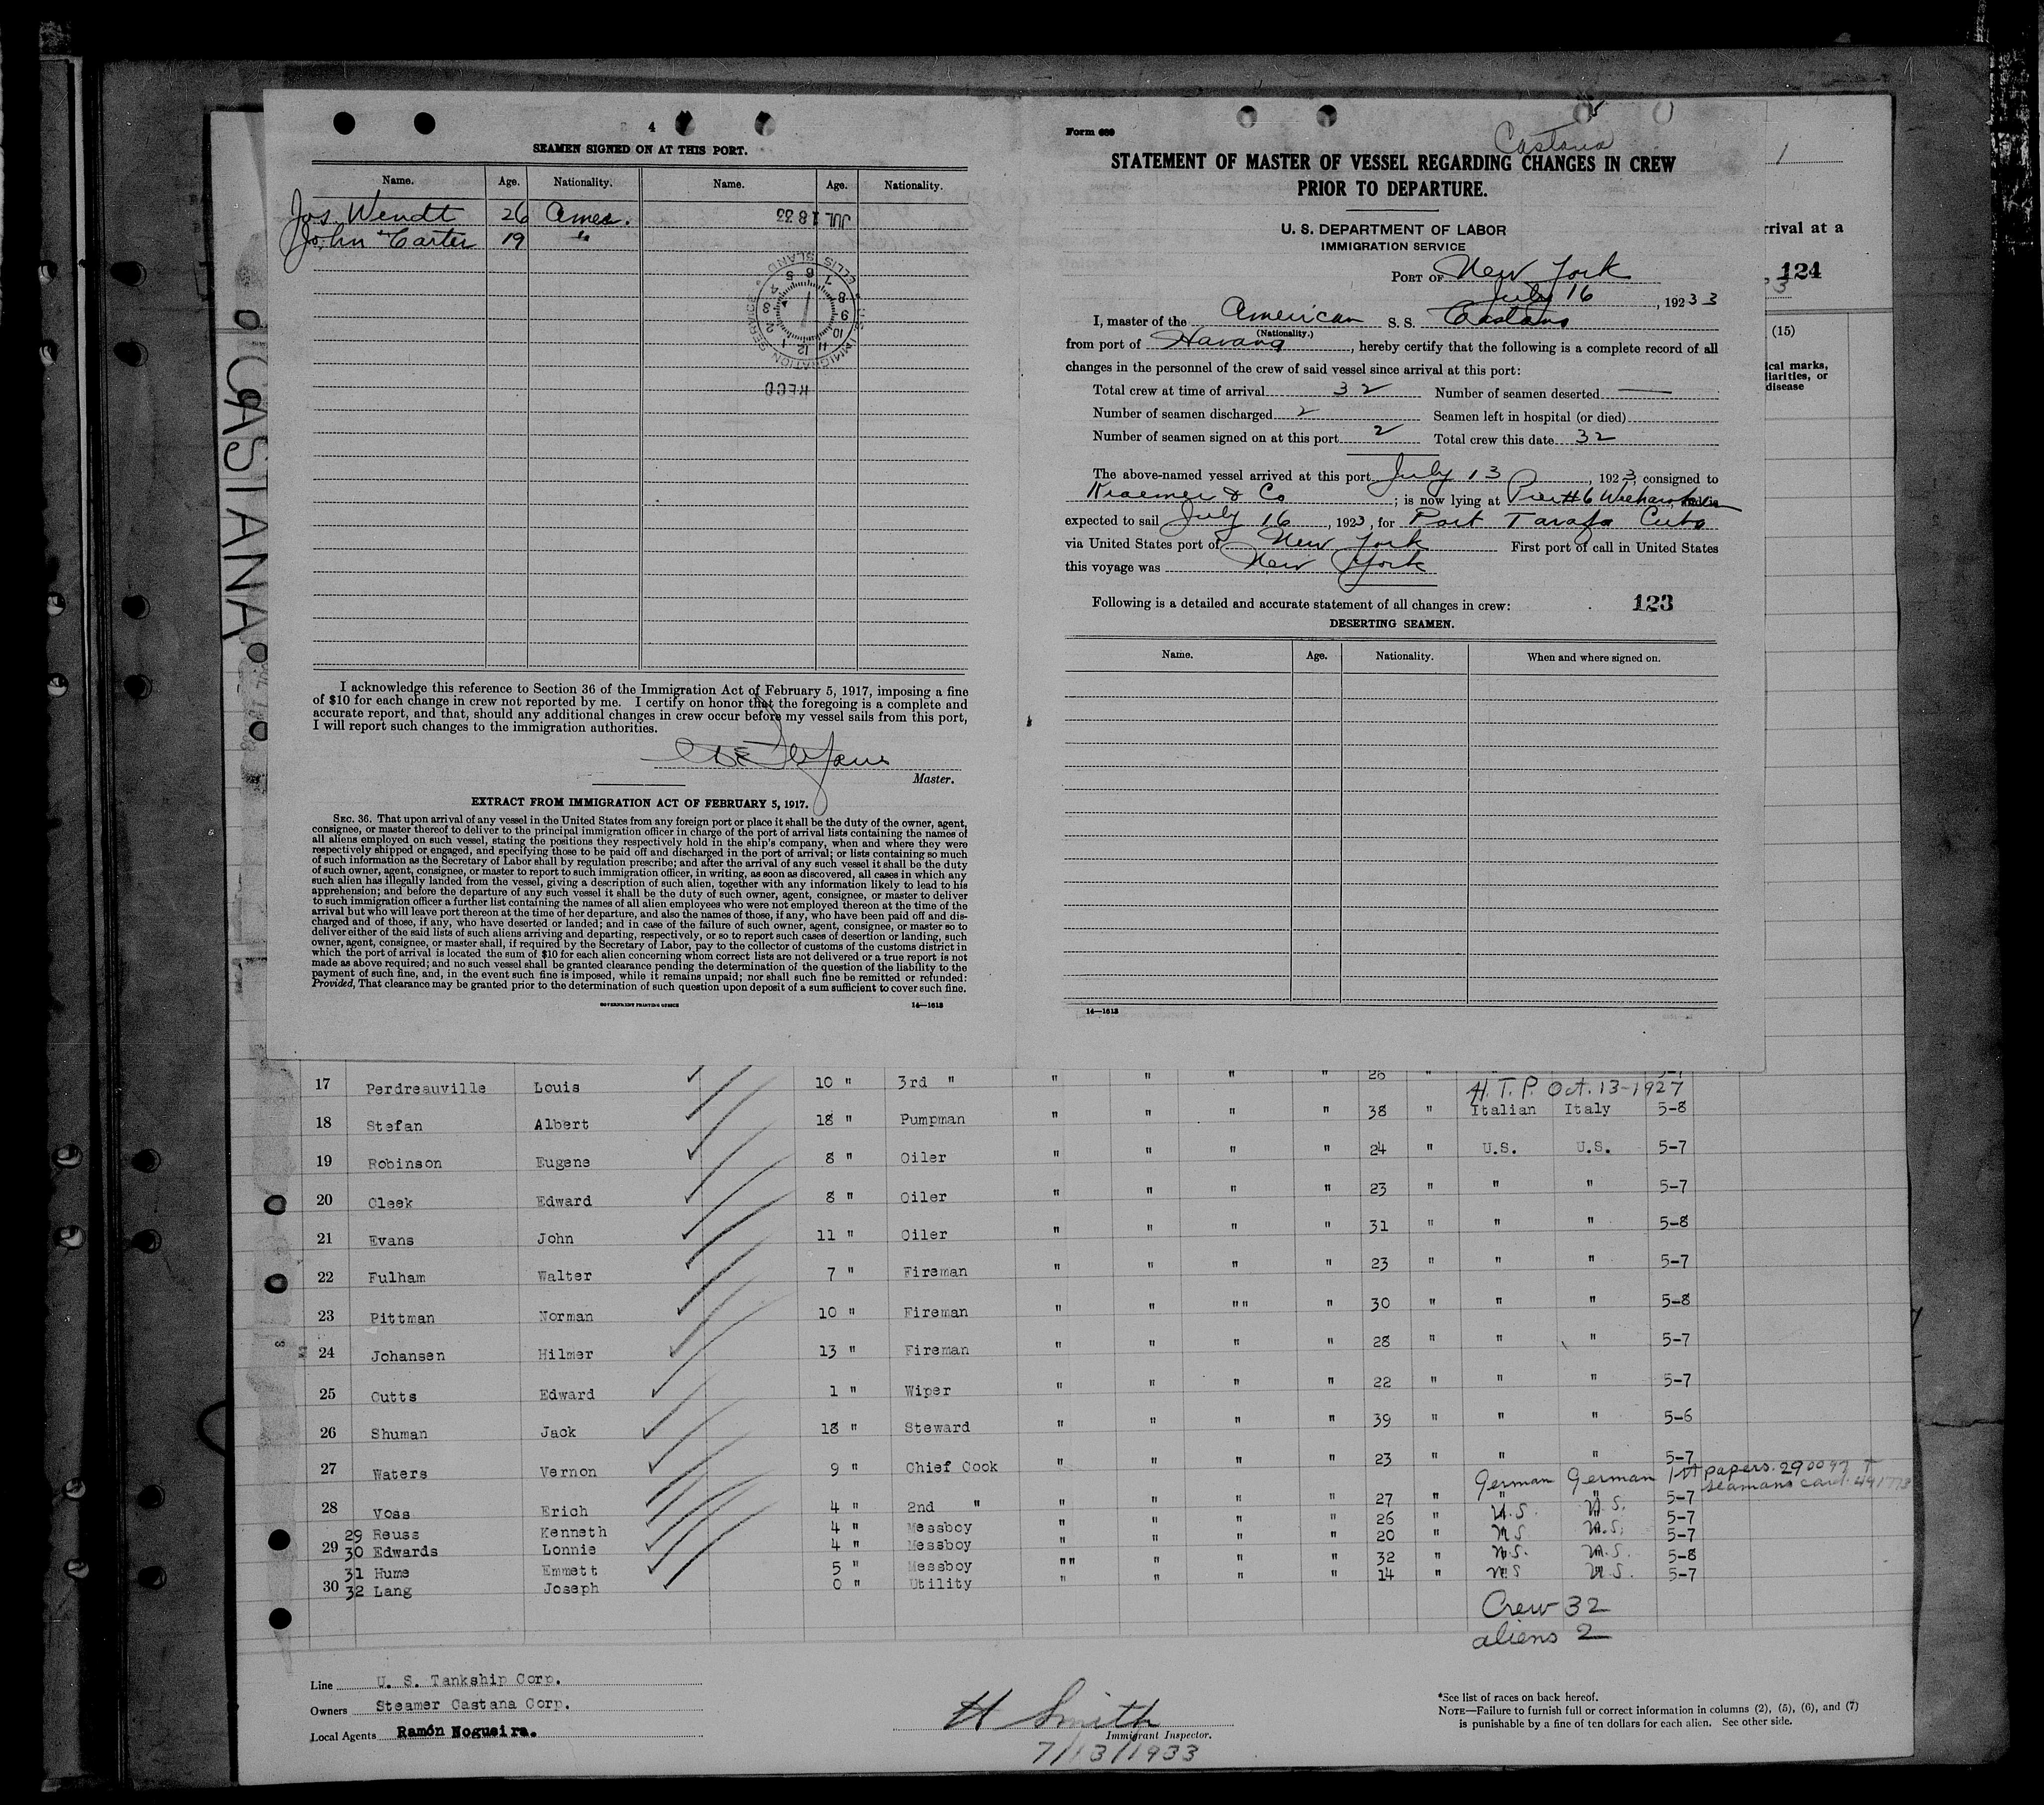 4
SEAMEN SIGNED ON AT THIS PORT.
Name. Age. Nationality. Name. Age. Nationality.
Jos Wendt 26 Amer.
John Carter 19 "
JUL 18 33
U.S. IMMIGRATION SERVICE ELLIS ISLAND
1 2 3 4 5 6 7 8 9 10 11 12
RECD
I acknowledge this reference to Section 36 of the Immigration Act of February 5, 1917, imposing a fine
of $10 for each change in crew not reported by me. I certify on honor that the foregoing is a complete and
accurate report, and that, should any additional changes in crew occur before my vessel sails from this port,
I will report such changes to the immigration authorities.
Master.
EXTRACT FROM IMMIGRATION ACT OF FEBRUARY 5, 1917.
SEC. 36. That upon arrival of any vessel in the United States from any foreign port or place it shall be the duty of the owner, agent,
consignee, or master thereof to deliver to the principal immigration officer in charge of the port of arrival lists containing the names of
all aliens employed on such vessel, stating the positions they respectively hold in the ship's company, when and where they were
respectively shipped or engaged, and specifying those to be paid off and discharged in the port of arrival; or lists containing so much
of such information as the Secretary of Labor shall by regulation prescribe; and after the arrival of any such vessel it shall be the duty
of such owner, agent, consignee, or master to report to such immigration officer, in writing, as soon as discovered, all cases in which any
such alien has illegally landed from the vessel, giving a description of such alien, together with any information likely to lead to his
apprehension; and before the departure of any such vessel it shall be the duty of such owner, agent, consignee, or master to deliver
to such immigration officer a further list containing the names of all alien employees who were not employed thereon at the time of the
arrival but who will leave port thereon at the time of her departure, and also the names of those, if any, who have been paid off and dis-
charged and of those, if any, who have deserted or landed; and in case of the failure of such owner, agent, consignee, or master so to
deliver either of the said lists of such aliens arriving and departing, respectively, or so to report such cases of desertion or landing, such
owner, agent, consignee, or master shall, if required by the Secretary of Labor, pay to the collector of customs of the customs district in
which the port of arrival is located the sum of $10 for each alien concerning whom correct lists are not delivered or a true report is not
made as above required; and no such vessel shall be granted clearance pending the determination of the question of the liability to the
payment of such fine, and, in the event such fine is imposed, while it remains unpaid; nor shall such fine be remitted or refunded:
Provided, That clearance may be granted prior to the determination of such question upon deposit of a sum sufficient to cover such fine.
GOVERNMENT PRINTING OFFICE 14—1613
Form 680
Castana
STATEMENT OF MASTER OF VESSEL REGARDING CHANGES IN CREW
PRIOR TO DEPARTURE.
U. S. DEPARTMENT OF LABOR
IMMIGRATION SERVICE
PORT OF New York
July 16, 1923 3
I, master of the American S. S. Castana
(Nationality.)
from port of Havana, hereby certify that the following is a complete record of all
changes in the personnel of the crew of said vessel since arrival at this port:
Total crew at time of arrival 32 Number of seamen deserted —
Number of seamen discharged 2 Seamen left in hospital (or died)
Number of seamen signed on at this port 2 Total crew this date 32
The above-named vessel arrived at this port July 13, 1923, consigned to
Kraemer & Co; is now lying at Pier #6 Weehawken
expected to sail July 16, 1923, for Port Tarafa Cuba
via United States port of New York First port of call in United States
this voyage was New York
Following is a detailed and accurate statement of all changes in crew: 123
DESERTING SEAMEN.
Name. Age. Nationality. When and where signed on.
14—1613
1
rrival at a
124
3
(15)
ical marks,
liarities, or
disease
CASTANA
17 Perdreauville Louis 10 " 3rd " " " " " 26 "
H.T.P. Oct. 13-1927
18 Stefan Albert 18 " Pumpman " " " " 38 " Italian Italy 5-8
19 Robinson Eugene 8 " Oiler " " " " 24 " U.S. U.S. 5-7
20 Cleek Edward 8 " Oiler " " " " 23 " " " 5-7
21 Evans John 11 " Oiler " " " " 31 " " " 5-8
22 Fulham Walter 7 " Fireman " " " " 23 " " " 5-7
23 Pittman Norman 10 " Fireman " " "" " 30 " " " 5-8
24 Johansen Hilmer 13 " Fireman " " " " 28 " " " 5-7
25 Cutts Edward 1 " Wiper " " " " 22 " " " 5-7
26 Shuman Jack 18 " Steward " " " " 39 " " " 5-6
27 Waters Vernon 9 " Chief Cook " " " " 23 " " " 5-7
German German 1st papers. 290097
seamans card.
28 Voss Erich 4 " 2nd " " " " " 27 " " " 5-7
29 Reuss Kenneth 4 " Messboy " " " " 26 " U.S. U.S. 5-7
29 30 Edwards Lonnie 4 " Messboy " " " " 20 " U.S. U.S. 5-7
31 Hume Emmett 5 " Messboy "" " " " 32 " U.S. U.S. 5-8
30 32 Lang Joseph 0 " Utility " " " " 14 " U.S. U.S. 5-7
Crew 32
aliens 2
Line U. S. Tankship Corp.
Owners Steamer Castana Corp.
Local Agents Ramón Nogueira.
H Smith
Immigrant Inspector.
7/13/1933
*See list of races on back hereof.
NOTE—Failure to furnish full or correct information in columns (2), (5), (6), and (7)
is punishable by a fine of ten dollars for each alien. See other side.